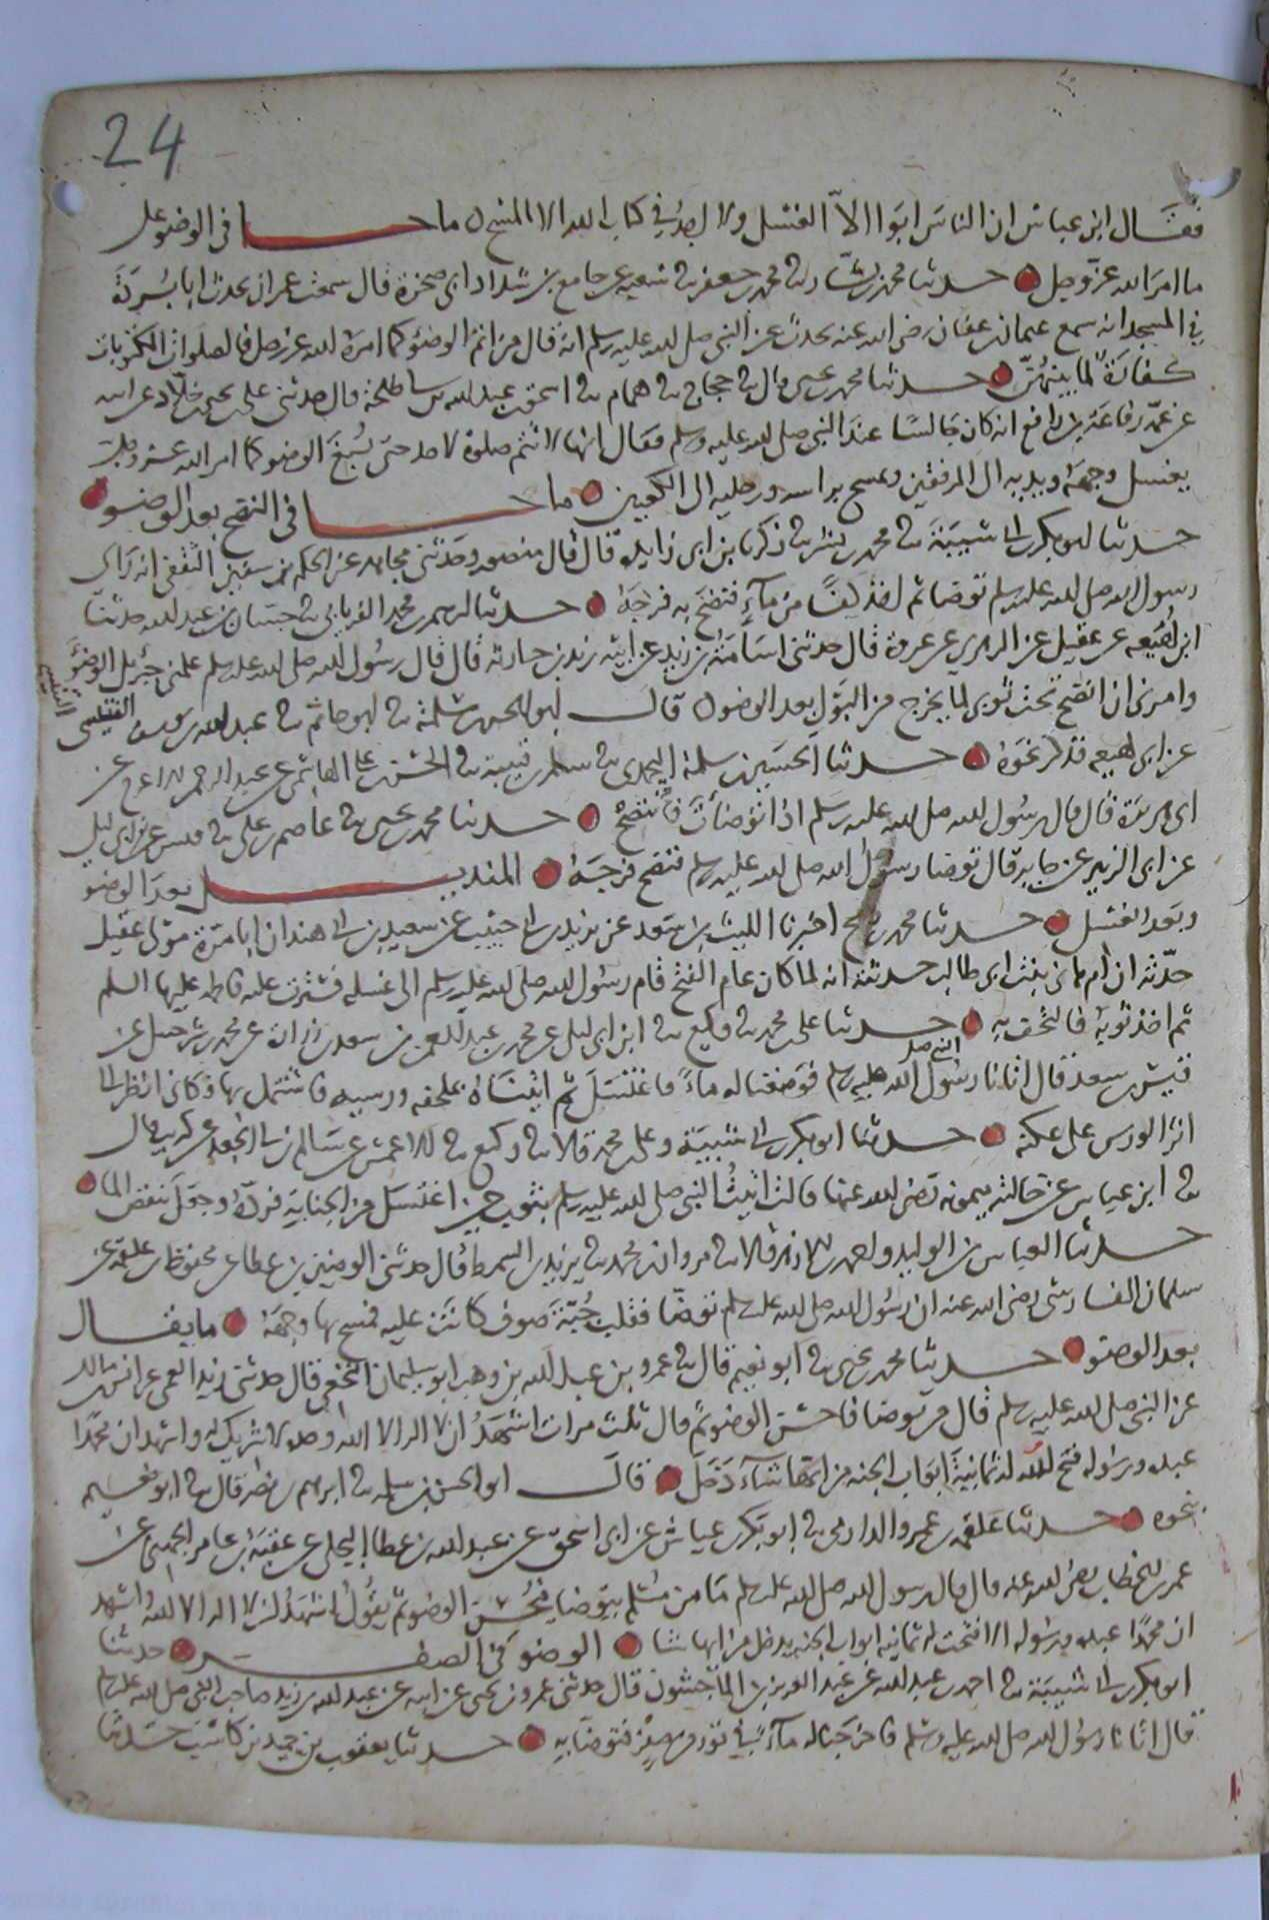 24
فقال ابن عباس ان الناس ابوا الا الغسل ولا اجد في كتاب الله الا المسح ما جا في الوضو على
ما امر الله عز وجل حدثنا محمد بن بشار ثنا محمد بن جعفر ثنا شعبة عن جامع بن شداد ابي صخرة قال سمعت حمران يحدث ابا بردة
في المسجد انه سمع عثمان بن عفان رضي الله عنه يحدث عن النبي صلى الله عليه وسلم انه قال من اتم الوضو كما امره الله عز وجل فالصلوات المكتوبات
كفارة لما بينهن حدثنا محمد بن يحيى قال ثنا حجاج ثنا همام ثنا اسحق بن عبد الله بن ابي طلحة قال حدثني علي بن يحيى بن خلاد عن ابيه
عن عمه رفاعة بن رافع انه كان جالسا عند النبي صلى الله عليه وسلم فقال انها لا تتم صلوة لاحد حتى يسبغ الوضو كما امر الله عز وجل
يغسل وجهه ويديه الى المرفقين ويمسح براسه ورجليه الى الكعبين ما جا في النضح بعد الوضو
حدثنا ابو بكر بن ابي شيبة ثنا محمد بن بشر ثنا زكريا بن ابي زايدة قال قال منصور وحدثني مجاهد عن الحكم بن سفين الثقفي انه راى
رسول الله صلى الله عليه وسلم توضا ثم اخذ كفا من ماء فنضح به فرجه حدثنا ابرهيم بن محمد الفريابي ثنا حسان بن عبد الله حدثنا
ابن لهيعة عن عقيل عن الزهري عن عروة قال حدثني اسامة بن زيد عن ابيه زيد بن حارثة قال قال رسول الله صلى الله عليه وسلم علمني جبريل الوضو
وامرني ان انضح تحت ثوبي لما يخرج من البول بعد الوضو قال ابو الحسن بن سلمة ثنا ابو حاتم ثنا عبد الله بن يوسف التنيسي
عن ابن لهيعة فذكر نحوه حدثنا الحسين بن سلمة اليحمدي ثنا سلم بن قتيبة ثنا الحسن بن علي الهاشمي عن عبد الرحمن الاعرج عن
ابي هريرة قال قال رسول الله صلى الله عليه وسلم اذا توضات فانتضح حدثنا محمد بن يحيى ثنا عاصم بن علي ثنا قيس عن ابن ابي ليلى
عن ابي الزبير عن جابر قال توضا رسول الله صلى الله عليه وسلم فنضح فرجه المنديل بعد الوضو
وبعد الغسل حدثنا محمد بن رمح اخبرنا الليث بن سعد عن يزيد بن ابي حبيب عن سعيد بن ابي هند ان ابا مرة مولى عقيل
حدثه ان ام هاني بنت ابي طالب حدثته انه لما كان عام الفتح قام رسول الله صلى الله عليه وسلم الى غسله فسترت عليه فاطمة عليها السلم
ثم اخذ ثوبه فالتحف به حدثنا علي بن محمد ثنا وكيع ثنا ابن ابي ليلى عن محمد بن عبد الرحمن بن سعد بن زرارة عن محمد بن شرحبيل عن
قيس بن سعد قال اتانا رسول الله صلى الله عليه وسلم فوضعنا له ماء فاغتسل ثم اتيناه بملحفة ورسية فاشتمل بها فكاني انظر الى
اثر الورس على عكنه حدثنا ابو بكر بن ابي شيبة وعلي بن محمد قالا ثنا وكيع ثنا الاعمش عن سالم بن ابي الجعد عن كريب قال
ثنا ابن عباس عن خالته ميمونة رضي الله عنها قالت اتيت النبي صلى الله عليه وسلم بثوب حين اغتسل من الجنابة فرده وجعل ينفض الما
حدثنا العباس بن الوليد واحمد بن الازهر قالا ثنا مروان بن محمد ثنا يزيد بن السمط قال حدثني الوضين بن عطا عن محفوظ بن علقمة عن
سلمان الفارسي رضي الله عنه ان رسول الله صلى الله عليه وسلم توضا فقلب جبة صوف كانت عليه فمسح بها وجهه ما يقال
بعد الوضو حدثنا محمد بن يحيى ثنا ابو نعيم قال ثنا عمرو بن عبد الله بن وهب ابو سليمان النخعي قال حدثني زيد العمي عن انس بن مالك
عن النبي صلى الله عليه وسلم قال من توضا فاحسن الوضو ثم قال ثلث مرات اشهد ان لا اله الا الله وحده لا شريك له واشهد ان محمدا
عبده ورسوله فتح الله له ثمانية ابواب الجنة من ايها شاء دخل قال ابو الحسن بن سلمة ثنا ابرهيم بن نصر قال ثنا ابو نعيم
بنحوه حدثنا علقمة بن عمرو الدارمي ثنا ابو بكر بن عياش عن ابي اسحق عن عبد الله بن عطا البجلي عن عقبة بن عامر الجهني عن
عمر بن الخطاب رضي الله عنه قال قال رسول الله صلى الله عليه وسلم ما من مسلم يتوضا فيحسن الوضو ثم يقول اشهد ان لا اله الا الله واشهد
ان محمدا عبده ورسوله الا فتحت له ثمانية ابواب الجنة يدخل من ايها شا الوضو في الصفر حدثنا
ابو بكر بن ابي شيبة ثنا احمد بن عبد الله عن عبد العزيز بن الماجشون قال حدثني عمرو بن يحيى عن ابيه عن عبد الله بن زيد صاحب النبي صلى الله عليه وسلم
قال اتانا رسول الله صلى الله عليه وسلم فاخرجنا له ماء في تور من صفر فتوضا به حدثنا يعقوب بن حميد بن كاسب حدثنا